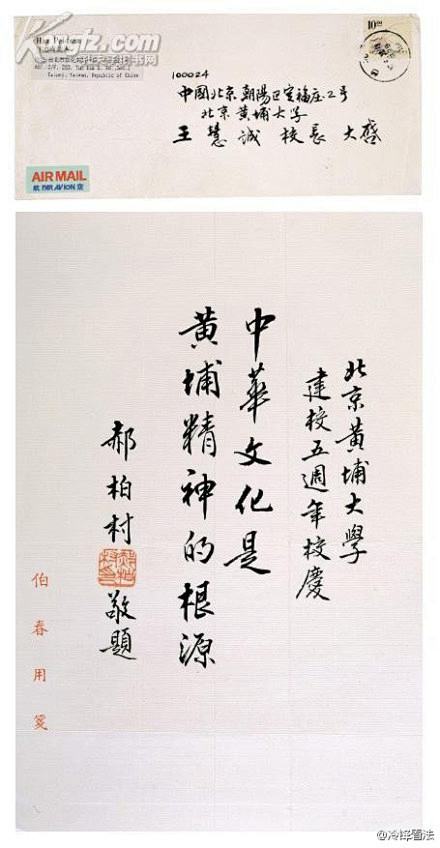 Kfz.com
Taipei, Taiwan, Republic of China
10.00
100024
中國北京朝陽區定福庄2号
北京黃埔大學
王慧誠校長大啓
AIR MAIL
航 PAR AVION 空
北京黃埔大學
建校五週年校慶
中華文化是
黃埔精神的根源
郝柏村
敬題
伯春用箋
@冷锋看法